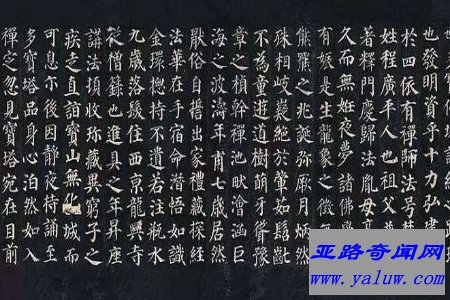 也發明資乎十力弘建
於四依有禪師法號
姓程廣平人也祖父
著釋門慶歸法胤母
久而無妊夜夢諸佛
有娠是生龍象之徵
熊羆之兆誕彌厥月炳然
殊相岐嶷絕於葷茹髫齔
不為童遊道樹萌牙聳豫
章之楨幹禪池畎澮涵巨
海之波濤年甫七歲居然
厭俗自誓出家禮藏探經
法華在手宿命潛悟如識
金環總持不遺若注瓶水
九歲落髮住西京龍興寺
從僧籙也進具之年昇座
講法頓收珍藏異窮子之
疾走直詣寶山無化城而
可息尔後因靜夜持誦至
多寶塔品身心泊然如入
禪定忽見寶塔宛在目前
亚路奇闻网
www.yaluw.com